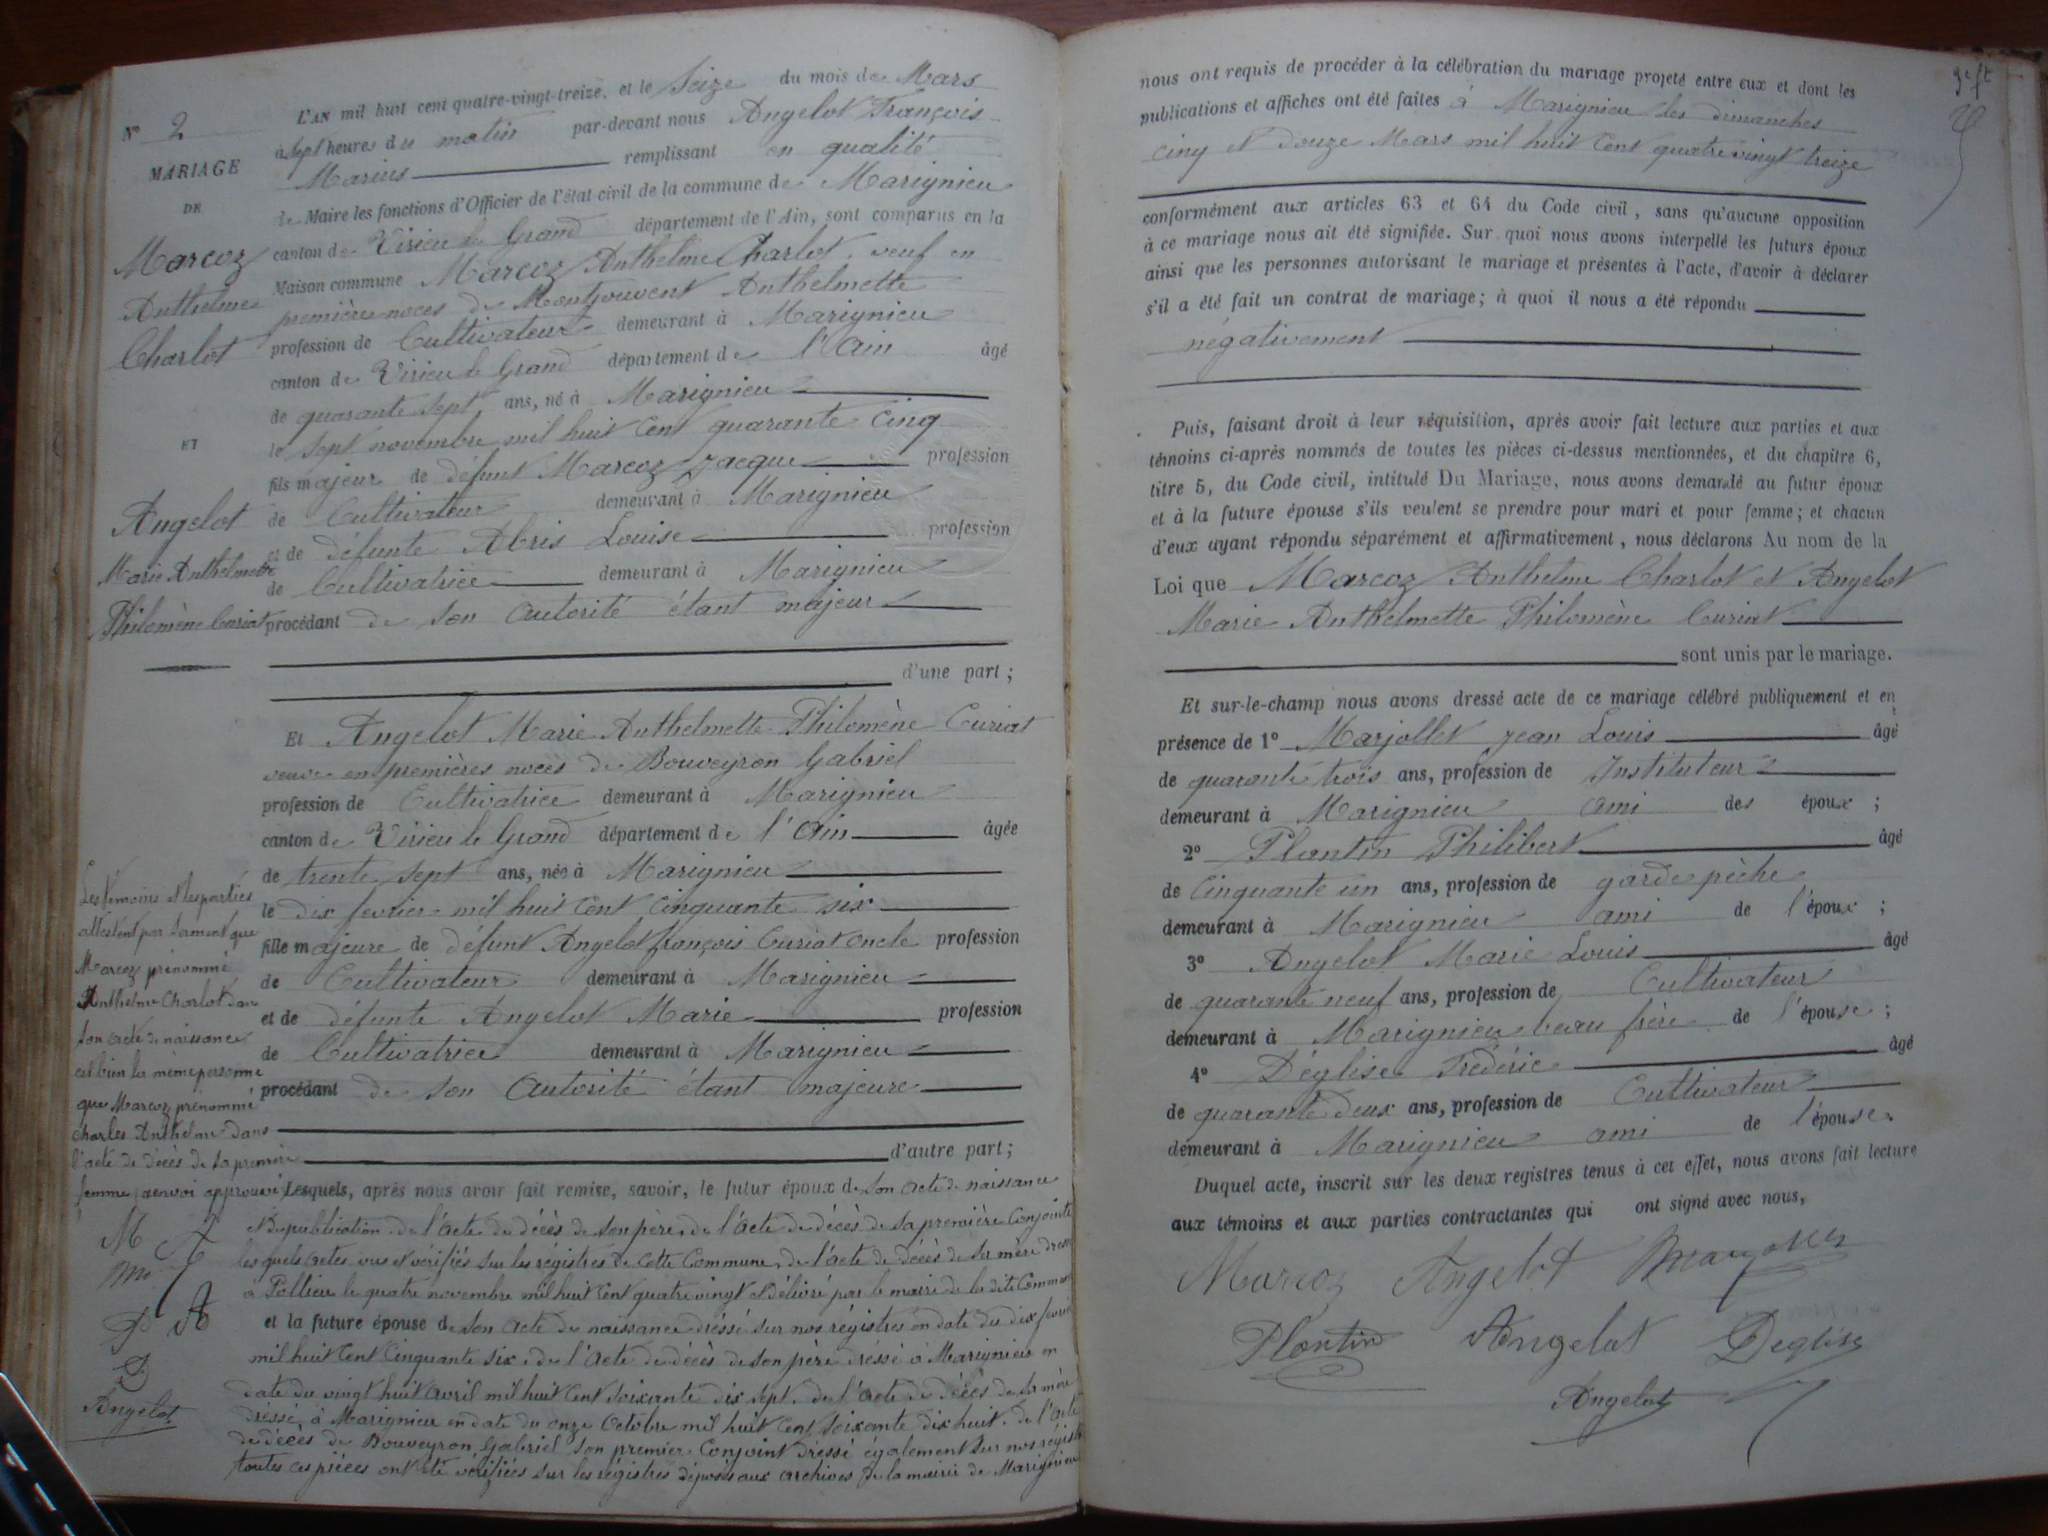 N° 2
MARIAGE
DE
Marcoz
Anthelme
Charlot
ET
Angelot
Marie Anthelmette
Philomène Curiat
L'AN mil huit cent quatre-vingt-treize, et le Seize du mois de Mars
à Sept heures du matin par-devant nous Angelot François
Marius remplissant en qualité
de Maire les fonctions d'Officier de l'état civil de la commune de Marignieu
canton de Virieu le Grand département de l'Ain, sont comparus en la
Maison commune Marcoz Anthelme Charlot, veuf en
premières noces de Montjouvent Anthelmette
profession de Cultivateur demeurant à Marignieu
canton de Virieu le Grand département de l'Ain âgé
de quarante sept ans, né à Marignieu
le Sept novembre mil huit cent quarante cinq
fils majeur de défunt Marcoz Jacque profession
de Cultivateur demeurant à Marignieu
et de défunte Abris Louise profession
de Cultivatrice demeurant à Marignieu
procédant de son autorité étant majeur
d'une part ;
Et Angelot Marie Anthelmette Philomène Curiat
veuve en premières noces de Bouveyron Gabriel
profession de Cultivatrice demeurant à Marignieu
canton de Virieu le Grand département de l'Ain âgée
de trente sept ans, née à Marignieu
le dix fevrier mil huit cent cinquante six
fille majeure de défunt Angelot françois Curiat oncle profession
de Cultivateur demeurant à Marignieu
et de défunte Angelot Marie profession
de Cultivatrice demeurant à Marignieu
procédant de son autorité étant majeure
d'autre part ;
Lesquels, après nous avoir fait remise, savoir, le futur époux de son acte de naissance
et de publication de l'acte de décès de son père, de l'acte de décès de sa première Conjointe
lesquels actes vus et vérifiés sur les régistres de cette Commune, de l'acte de décès de sa mère dressé
à Pollieu le quatre novembre mil huit cent quatre vingt et délivré par le maire de la dite Commune
et la future épouse de son acte de naissance dressé sur nos régistres en date du dix fevrier
mil huit cent cinquante six, de l'acte de décès de son père dressé à Marignieu en
date du vingt huit avril mil huit cent soixante dix sept, de l'acte de décès de sa mère
dressé à Marignieu en date du onze Octobre mil huit cent soixante dix huit, de l'acte
de décès de Bouveyron Gabriel son premier Conjoint dressé également sur nos régistres
toutes ces pièces ont été vérifiées sur les régistres déposés aux archives de la mairie de Marignieu
Les témoins et les parties
attestent par serment que
Marcoz prénommé
Anthelme Charlot dans
son acte de naissance
est bien la même personne
que Marcoz prénommé
Charles Anthelme dans
l'acte de décès de sa première
femme, renvoi approuvé
M A
m
P A
D
Angelot
nous ont requis de procéder à la célébration du mariage projeté entre eux et dont les
publications et affiches ont été faites à Marignieu les dimanches
cinq et douze Mars mil huit cent quatre vingt treize
conformément aux articles 63 et 64 du Code civil, sans qu'aucune opposition
à ce mariage nous ait été signifiée. Sur quoi nous avons interpellé les futurs époux
ainsi que les personnes autorisant le mariage et présentes à l'acte, d'avoir à déclarer
s'il a été fait un contrat de mariage ; à quoi il nous a été répondu
négativement
Puis, faisant droit à leur réquisition, après avoir fait lecture aux parties et aux
témoins ci-après nommés de toutes les pièces ci-dessus mentionnées, et du chapitre 6,
titre 5, du Code civil, intitulé Du Mariage, nous avons demandé au futur époux
et à la future épouse s'ils veulent se prendre pour mari et pour femme ; et chacun
d'eux ayant répondu séparément et affirmativement, nous déclarons Au nom de la
Loi que Marcoz Anthelme Charlot et Angelot
Marie Anthelmette Philomène Curiat
sont unis par le mariage.
Et sur-le-champ nous avons dressé acte de ce mariage célébré publiquement et en
présence de 1° Marjollet Jean Louis âgé
de quarante trois ans, profession de Instituteur
demeurant à Marignieu ami des époux ;
2° Plantin Philibert âgé
de Cinquante un ans, profession de garde pèche
demeurant à Marignieu ami de l'époux ;
3° Angelot Marie Louis âgé
de quarante neuf ans, profession de Cultivateur
demeurant à Marignieu beau frère de l'épouse ;
4° Déglise Fréderic âgé
de quarante deux ans, profession de Cultivateur
demeurant à Marignieu ami de l'épouse.
Duquel acte, inscrit sur les deux registres tenus à cet effet, nous avons fait lecture
aux témoins et aux parties contractantes qui ont signé avec nous,
Marcoz Angelot Marjollet
Plantin Angelot Deglise
Angelot